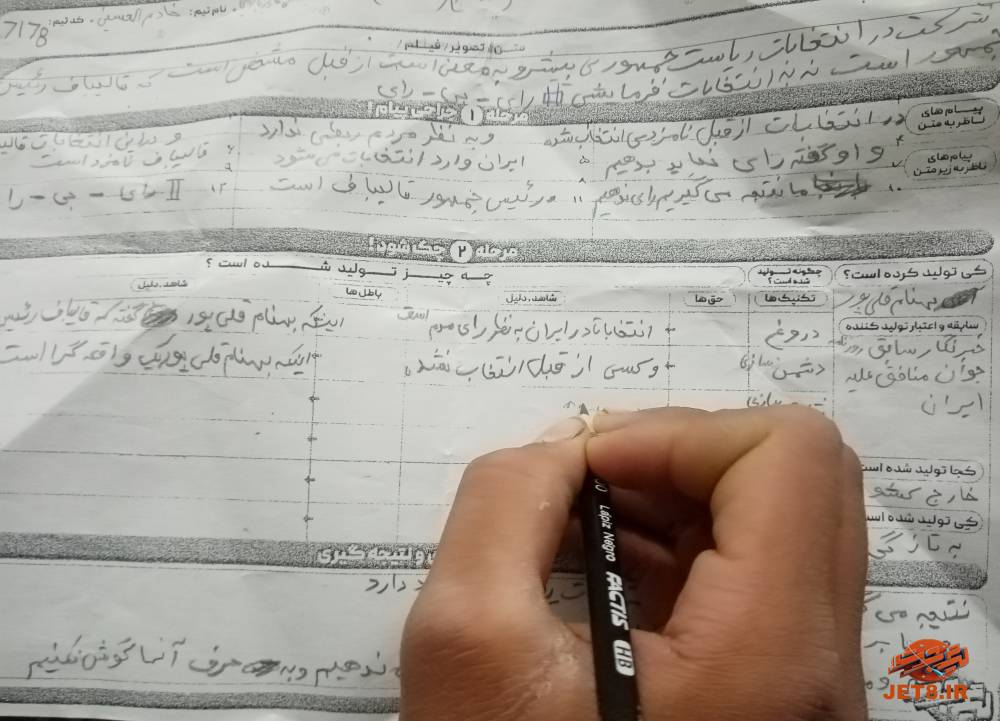 نام تیم: خادم الحسین، کد تیم: 7178
متن/تصویر/فیلم/
شرکت در انتخابات ریاست جمهوری بیشتر به معنی است از قبل مشخص است که قالیباف رئیس
جمهور است نه به انتخابات فرمایشی رای - بی - رای
مرحله ۱ جراحی پیام!
پیام های ناظر به متن
در انتخابات از قبل نامزدی انتخاب شده
و به نظر مردم ربطی ندارد
و در این انتخابات
۴ و او گفته رای نباید بدهیم
۵ ایران وارد انتخابات می شود
۶ قالیباف نامزد است
پیام های ناظر به زیر متن
۱۰ ما نتیجه می گیریم رای ندهیم
۱۱ و رئیس جمهور قالیباف است
۱۲ رای - بی - را
مرحله ۲ چک شود!
کی تولید کرده است؟
چگونه تولید شده است؟
چه چیز تولید شده است؟
تکنیک ها
حق ها
شاهد، دلیل
باطل ها
شاهد، دلیل
بهنام قلی پور
دروغ
انتخابات در ایران به نظر رای مردم است
اینکه بهنام قلی پور گفته که قالیباف رئیس
سابقه و اعتبار تولید کننده
خبرنگار سابق روزنامه
دشمن سازی
و کسی از قبل انتخاب نشده
اینکه بهنام قلی پور یک واقعه گرا است
جوان منافق علیه
ایران
کجا تولید شده است
خارج
کی تولید شده اس
به تازگی
و نتیجه گیری
نتیجه می
دارد
ندهیم و به حرف آنها گوش نکنیم
JET8.IR
FACTIS
HB
Lápiz Negro